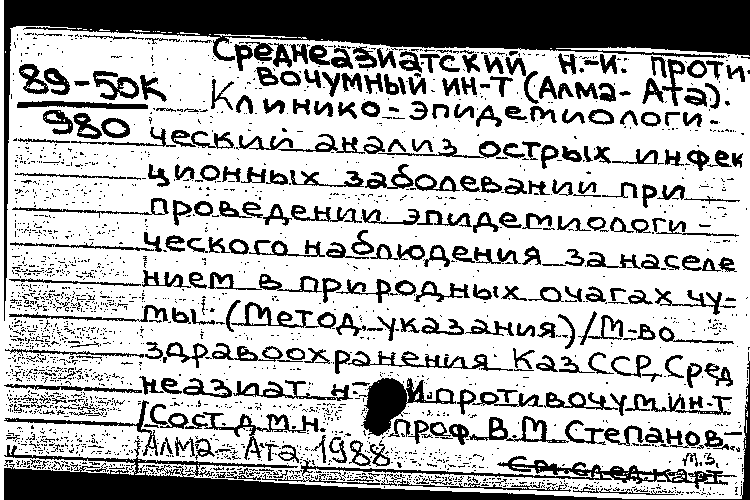 Среднеазиатский н.-и. проти-
89-50К вочумный ин-т (Алма-Ата).
980 Клинико-эпидемиологи-
ческий анализ острых инфек
ционных заболеваний при
проведении эпидемиологи-
ческого наблюдения за населе
нием в природных очагах чу-
мы: (Метод. указания)/М-во
здравоохранения КазССР, Сред
неазиат. н- И. противочум. ин-т
[Сост. д.м.н. проф. В.М Степанов.-
Алма-Ата, 1988. м.з.
См. след. карт.